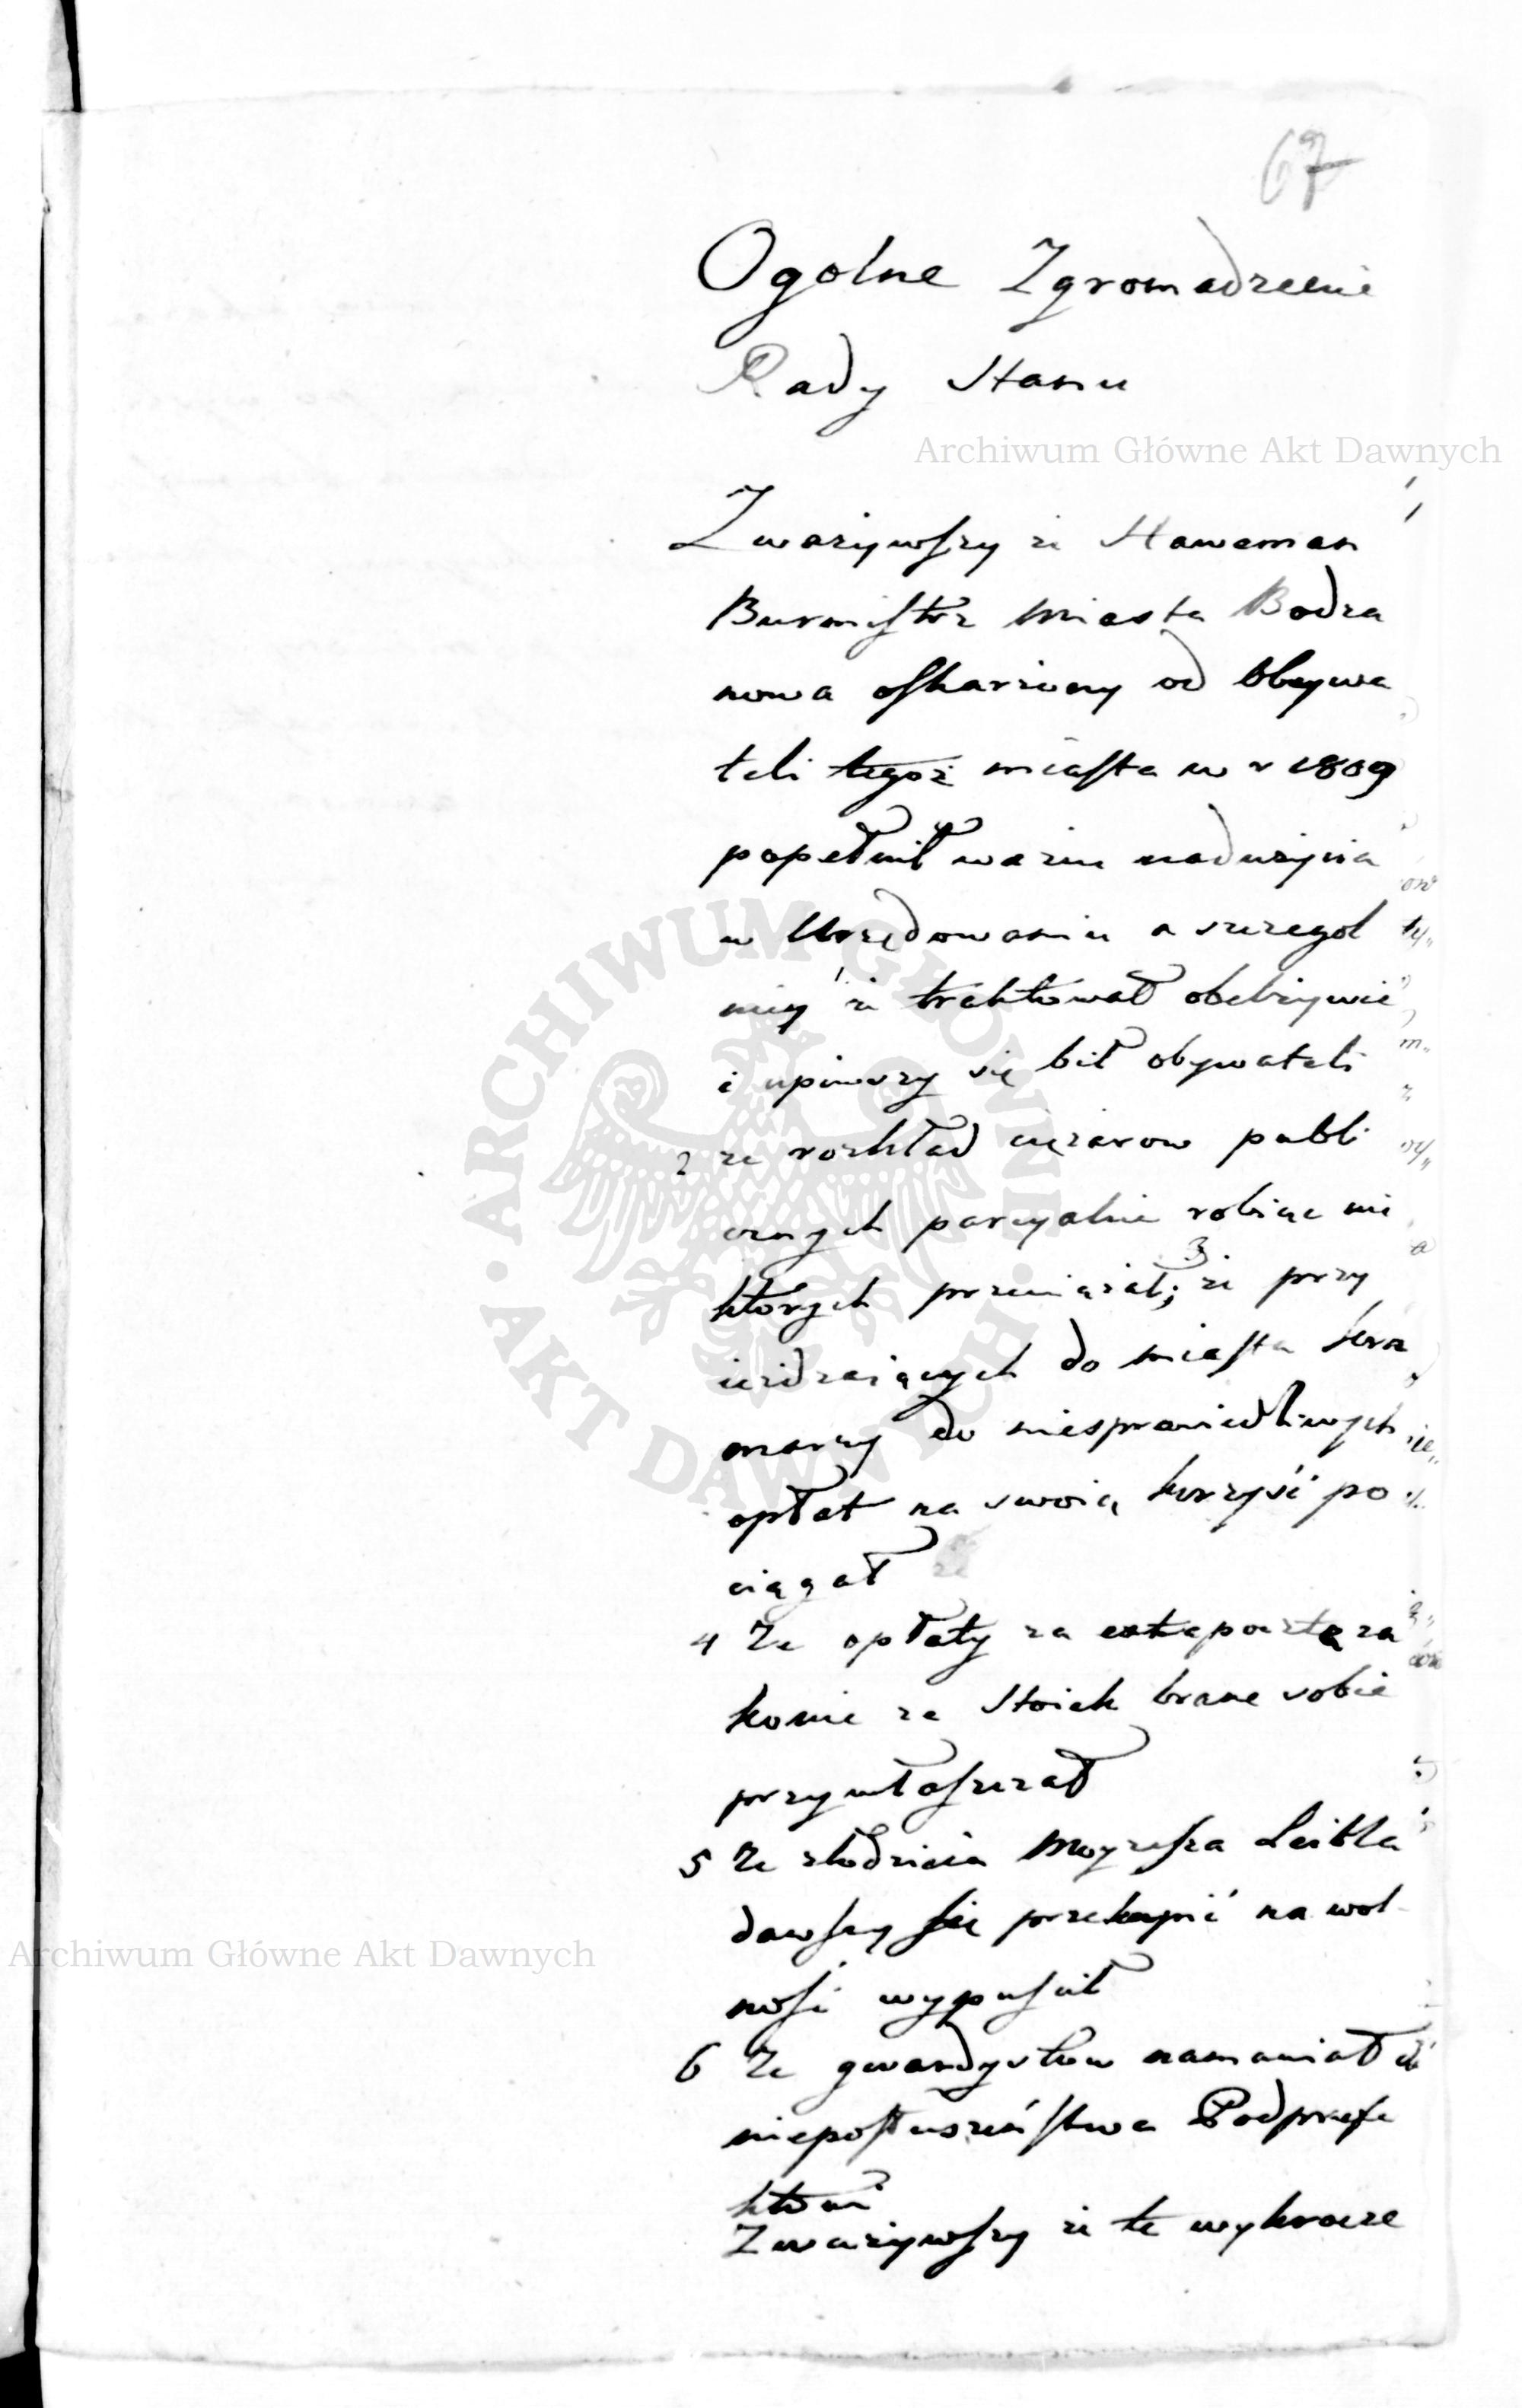 67
Ogolne Zgromadzenie
Rady Stanu
Archiwum Główne Akt Dawnych
Zwazywszy ze Haweman
Burmistrz Miasta Bodza
nowa oskarzony od Obywa
teli tegoż miasta w r 1809
popełnił wazne naduzycia
w Urzędowaniu a szczegol
niey 1 ze traktował obelzywie
i upiwszy się bił obywateli
2 ze rozkład cięzarow publi
cznych parcyalnie robiąc nie
ktorych przeciązał; 3 ze przy
iezdzaiących do miasta
do niesprawiedliwych
opłat na swoią korzyść po
ciągał
4 Ze opłaty za za
konie ze Stoiek brane sobie
przywłaszczał
5 Ze złodzieia Moyzesza Leibla
dawszy się przekupić na wol-
ność wypuścił
6 Ze gwardystow namawiał do
nieposłuszeństwa Podprefe
ktowi
Zwazywszy ze te wykrocze
Archiwum Główne Akt Dawnych
ARCHIWUM GŁÓWNE • AKT DAWNYCH •